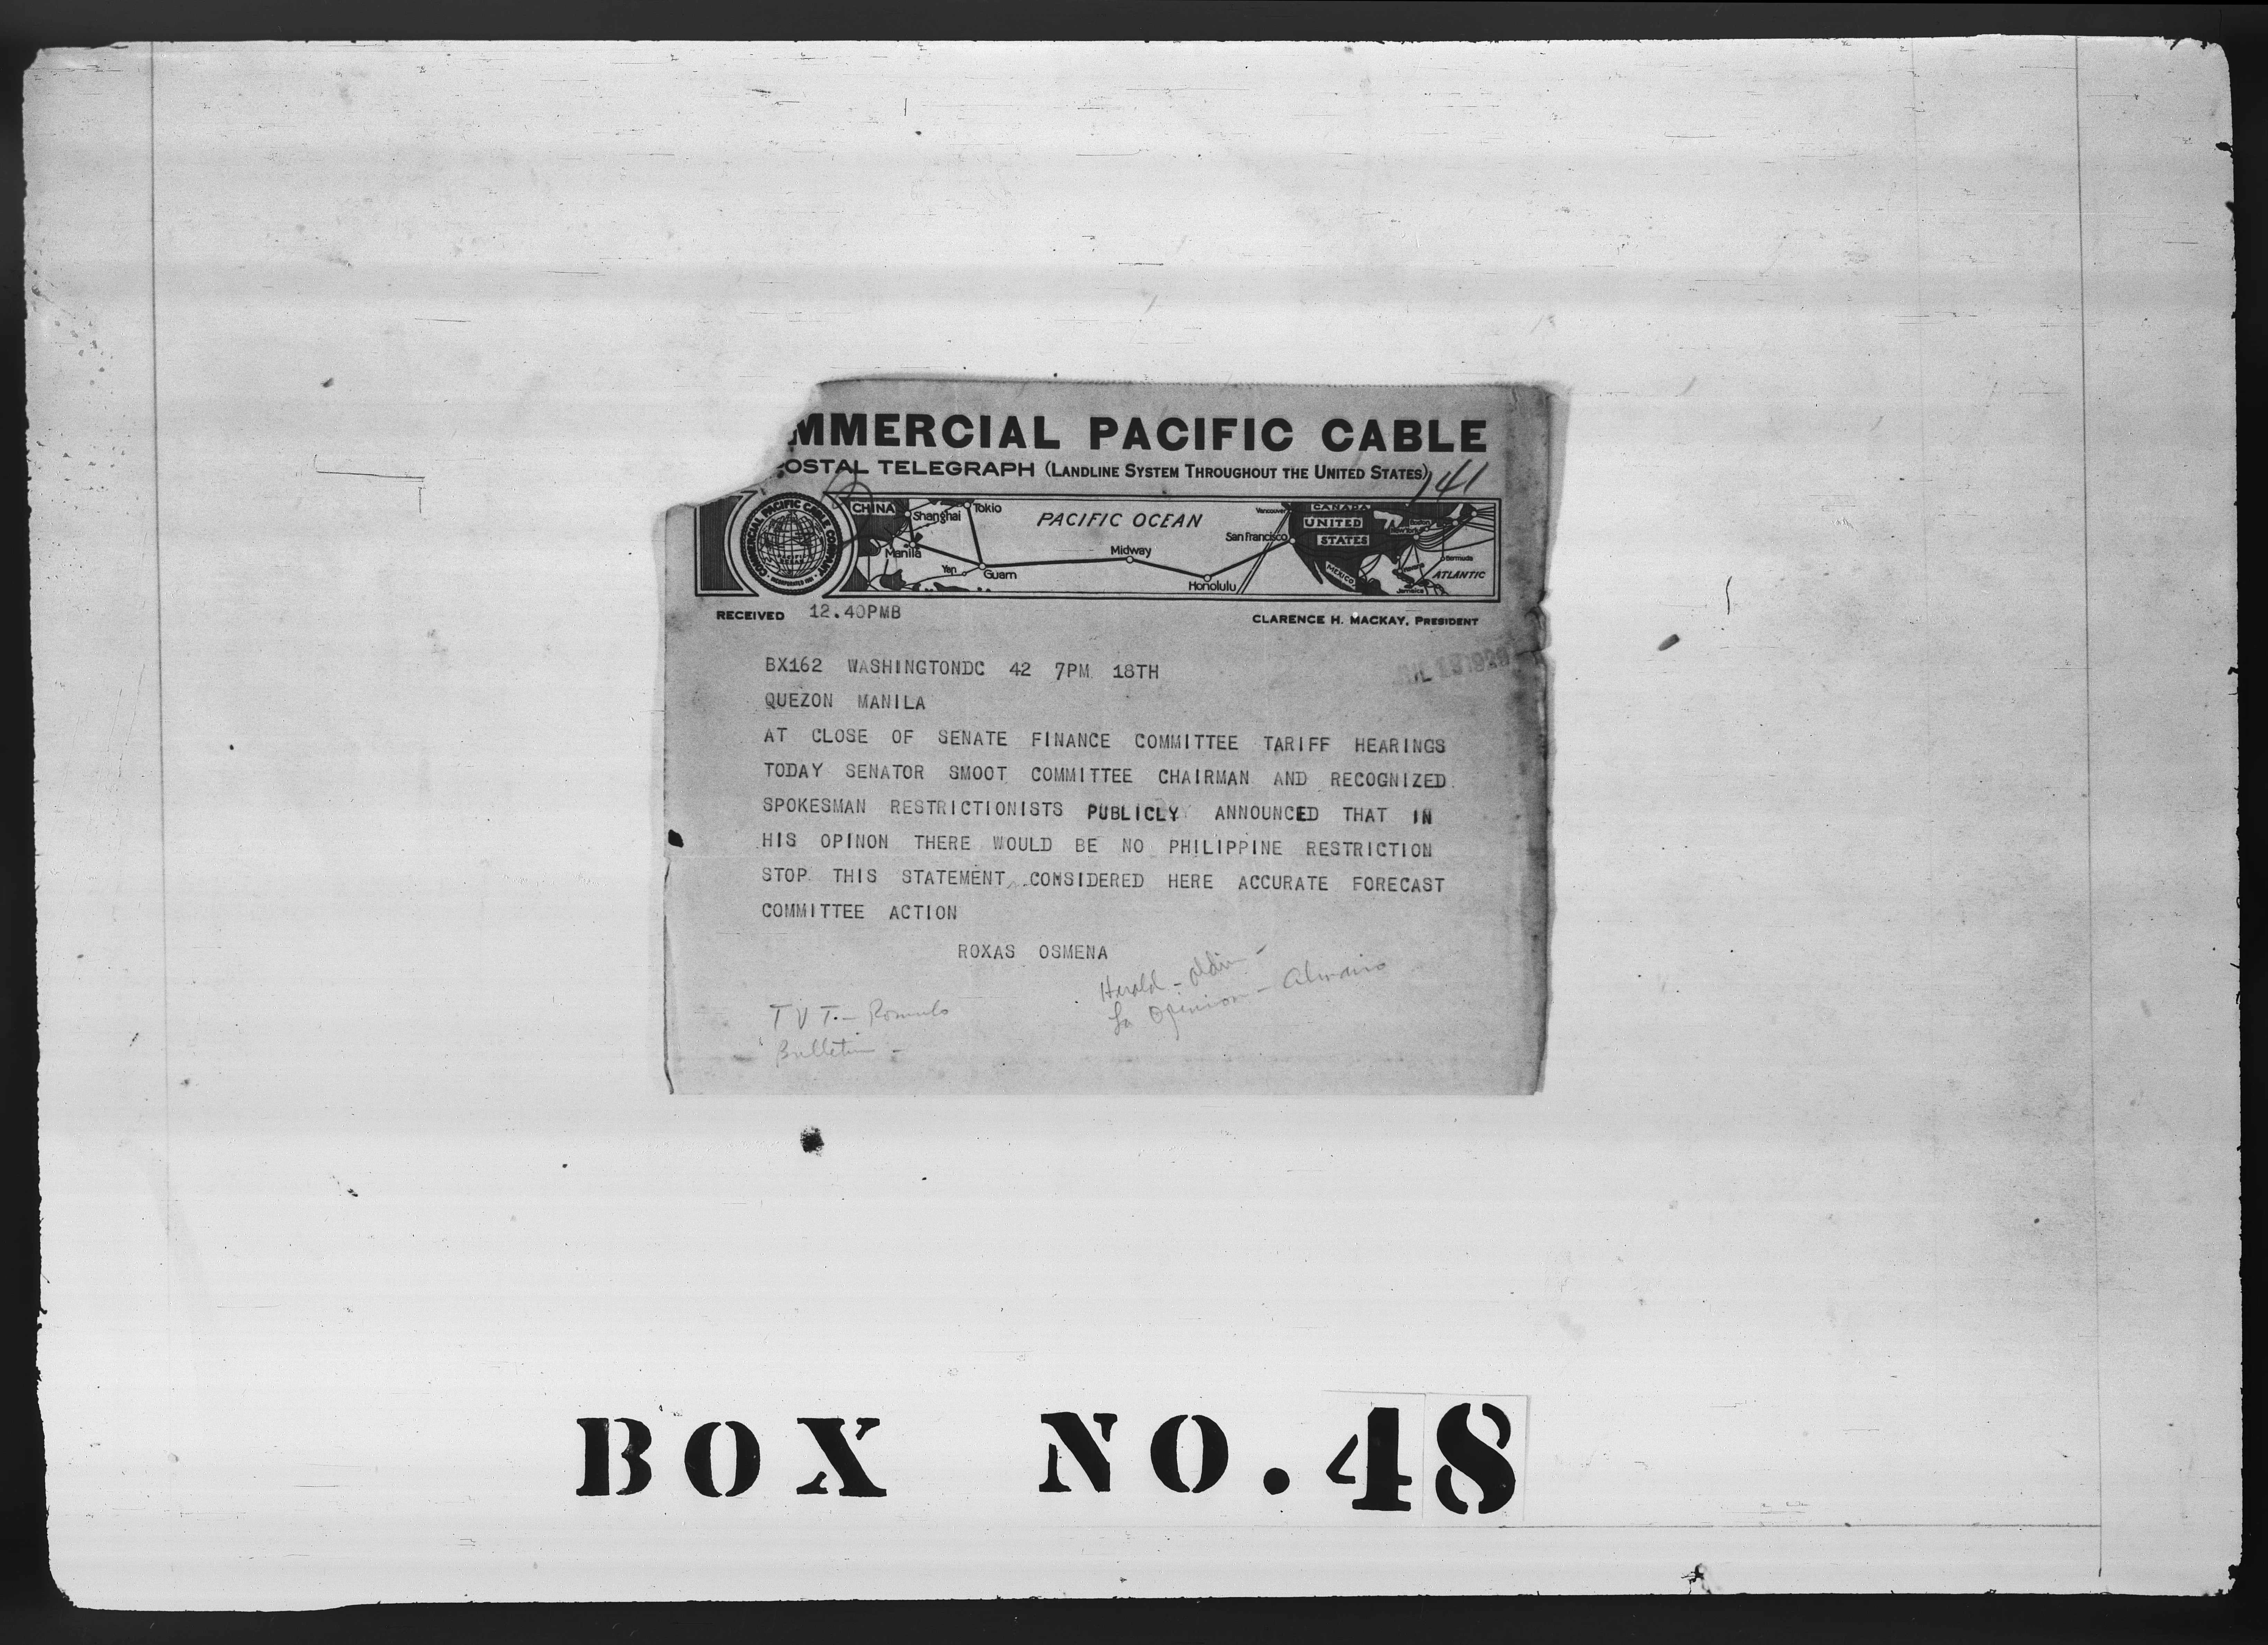 MMERCIAL PACIFIC CABLE
OSTAL TELEGRAPH (LANDLINE SYSTEM THROUGHOUT THE UNITED STATES)
141
COMMERCIAL PACIFIC CABLE COMPANY
CHINA
Shanghai
Tokio
Manila
Yap
Guam
PACIFIC OCEAN
Midway
Honolulu
San Francisco
Vancouver
CANADA
UNITED
STATES
MEXICO
Boston
New York
Bermuda
ATLANTIC
Jamaica
RECEIVED 12.40PMB
CLARENCE H. MACKAY, PRESIDENT
BX162 WASHINGTONDC 42 7PM 18TH
QUEZON MANILA
AT CLOSE OF SENATE FINANCE COMMITTEE TARIFF HEARINGS
TODAY SENATOR SMOOT COMMITTEE CHAIRMAN AND RECOGNIZED
SPOKESMAN RESTRICTIONISTS PUBLICLY ANNOUNCED THAT IN
HIS OPINON THERE WOULD BE NO PHILIPPINE RESTRICTION
STOP THIS STATEMENT CONSIDERED HERE ACCURATE FORECAST
COMMITTEE ACTION
ROXAS OSMENA
Herald -
La Opinion -
TVT. - Romulo
Bulletin -
BOX NO. 48